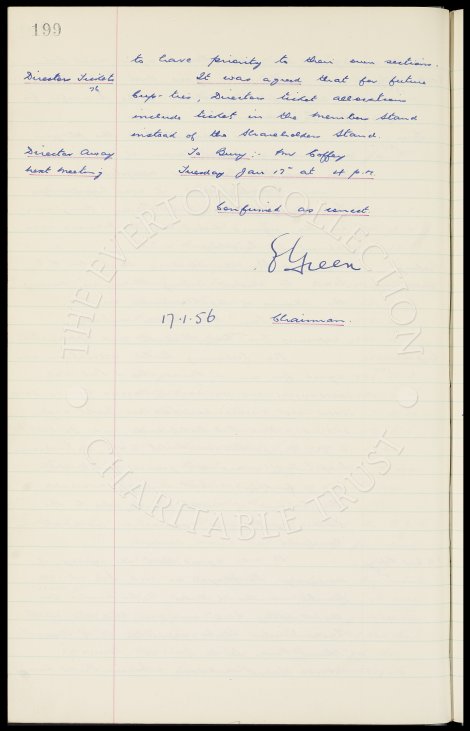 199
to have priority to their own sections.
Director Tickets It was agreed that for future
Cup-ties, Directors ticket allocations
include ticket in the Members Stand
instead of the Shareholders Stand.
Director Away To Bury:- Mr Coffey
Next Meeting Tuesday Jan 17th at 4 p.m.
Confirmed as correct
Green
17.1.56 Chairman.
THE EVERTON COLLECTION
CHARITABLE TRUST